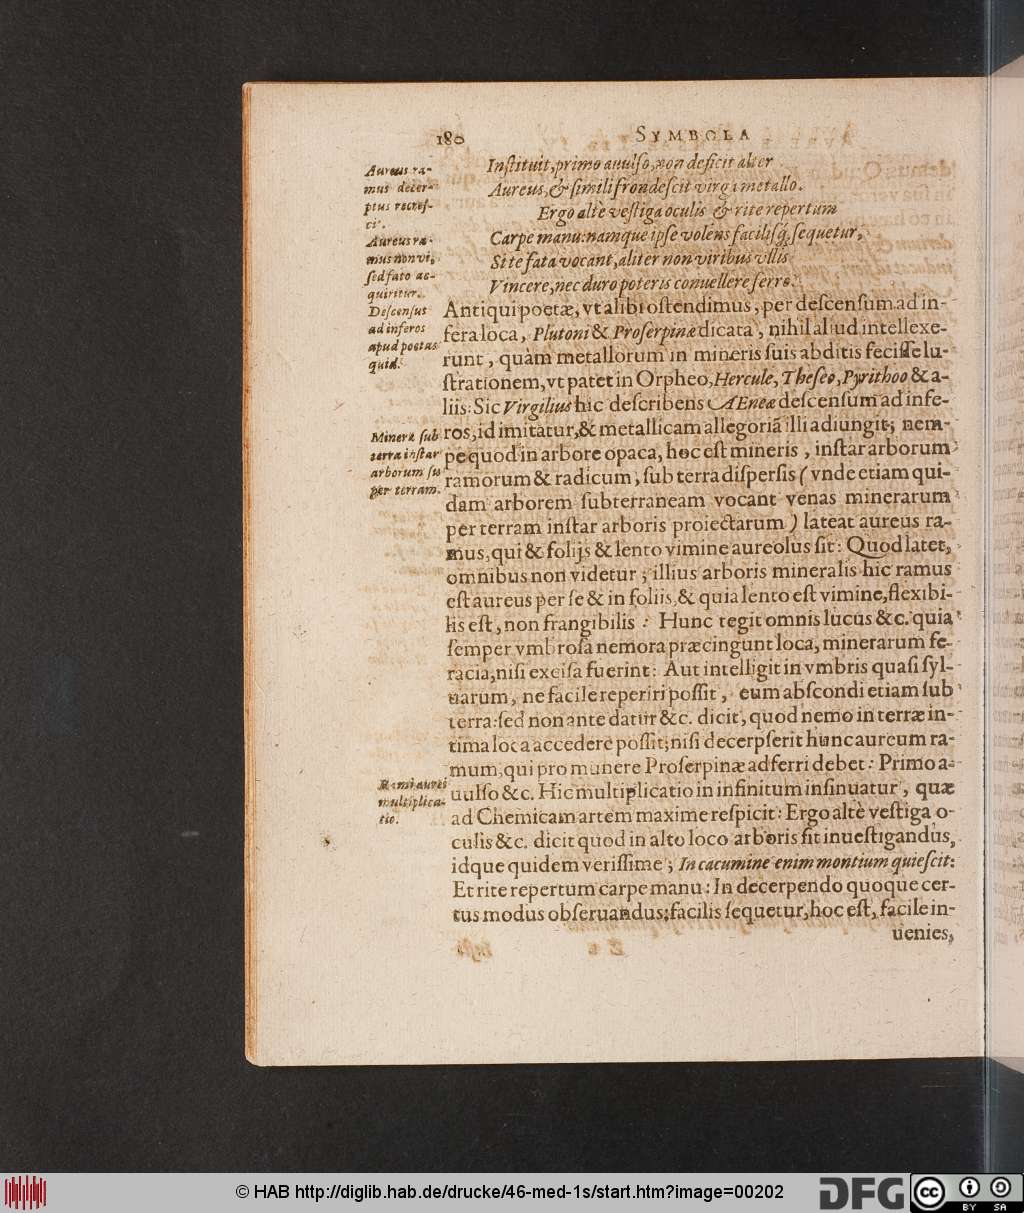 180
SYMBOLA
Inſtituit, primo auulſo, non deficit alter
Aureus, & ſimili frondeſcit virga metallo.
Ergo altè veſtiga oculis & rite repertum
Carpe manu: namque ipſe volens facilisq́, ſequetur,
Si te fata vocant, aliter non viribus vllis
Vincere, nec duro poteris conuellere ferro.
Aureus ra-
mus decer-
ptus recreſ-
cit.
Aureus ra-
mus non vi,
ſed fato ac-
quiritur.
Deſcenſus
ad inferos
apud poetas
quid.
Antiqui poetæ, vt alibi oſtendimus, per deſcenſum ad in-
fera loca, Plutoni & Proſerpinæ dicata, nihil aliud intellexe-
runt, quàm metallorum in mineris ſuis abditis feciſſe lu-
ſtrationem, vt patet in Orpheo, Hercule, Theſeo, Pyrithoo & a-
liis: Sic Virgilius hic deſcribens AEneæ deſcenſum ad infe-
ros, id imitatur, & metallicam allegoriã illi adiungit; nem-
pe quod in arbore opaca, hoc eſt mineris, inſtar arborum
ramorum & radicum, ſub terra diſperſis (vnde etiam qui-
dam arborem ſubterraneam vocant venas minerarum
per terram inſtar arboris proiectarum) lateat aureus ra-
mus, qui & folijs & lento vimine aureolus ſit: Quod latet,
omnibus non videtur; illius arboris mineralis hic ramus
eſt aureus per ſe & in foliis, & quia lento eſt vimine, flexibi-
lis eſt, non frangibilis: Hunc tegit omnis lucus &c. quia
ſemper vmbroſa nemora præcingunt loca, minerarum fe-
racia, niſi exciſa fuerint: Aut intelligit in vmbris quaſi ſyl-
uarum, ne facile reperiri poſſit, eum abſcondi etiam ſub
terra: ſed non ante datur &c. dicit, quod nemo in terræ in-
tima loca accedere poſſit; niſi decerpſerit hunc aureum ra-
mum, qui pro munere Proſerpinæ adferri debet: Primo a-
uulſo &c. Hic multiplicatio in infinitum inſinuatur, quæ
ad Chemicam artem maxime reſpicit: Ergo altè veſtiga o-
culis &c. dicit quod in alto loco arboris ſit inueſtigandus,
idque quidem veriſſime; In cacumine enim montium quieſcit:
Et rite repertum carpe manu: In decerpendo quoque cer-
tus modus obſeruandus; facilis ſequetur, hoc eſt, facile in-
uenies,
Mineræ ſub
terra inſtar
arborum ſu
per terram.
Rami aurei
multiplica-
tio.
© HAB http://diglib.hab.de/drucke/46-med-1s/start.htm?image=00202
DFG
cc
BY SA